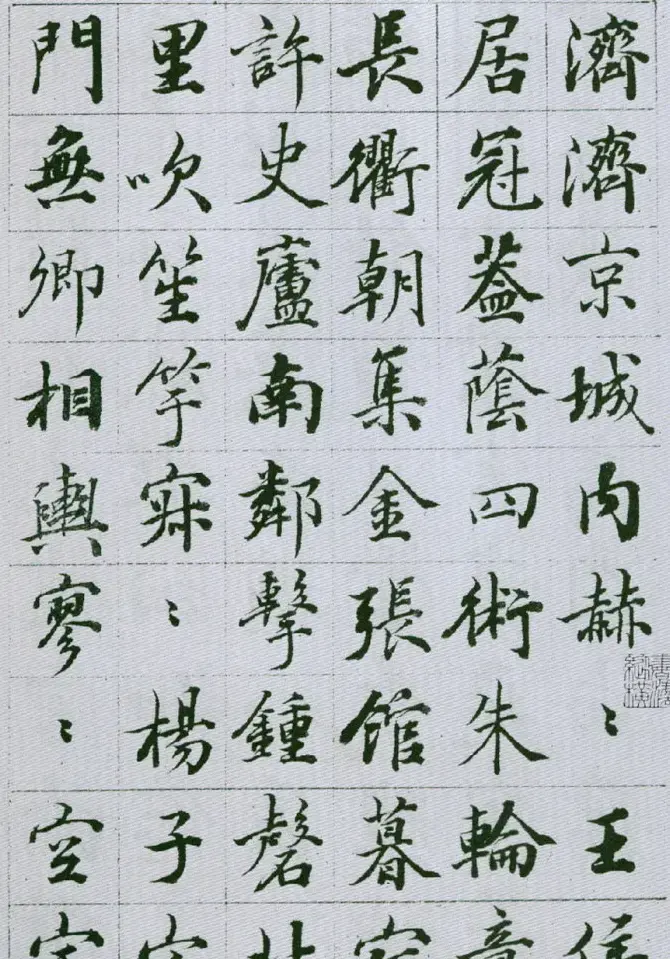 濟濟京城内赫〻王
居冠蓋蔭四術朱輪
長衢朝集金張館暮
許史廬南鄰擊鍾磬
里吹笙竽寂〻楊子
門無卿相輿寥〻空